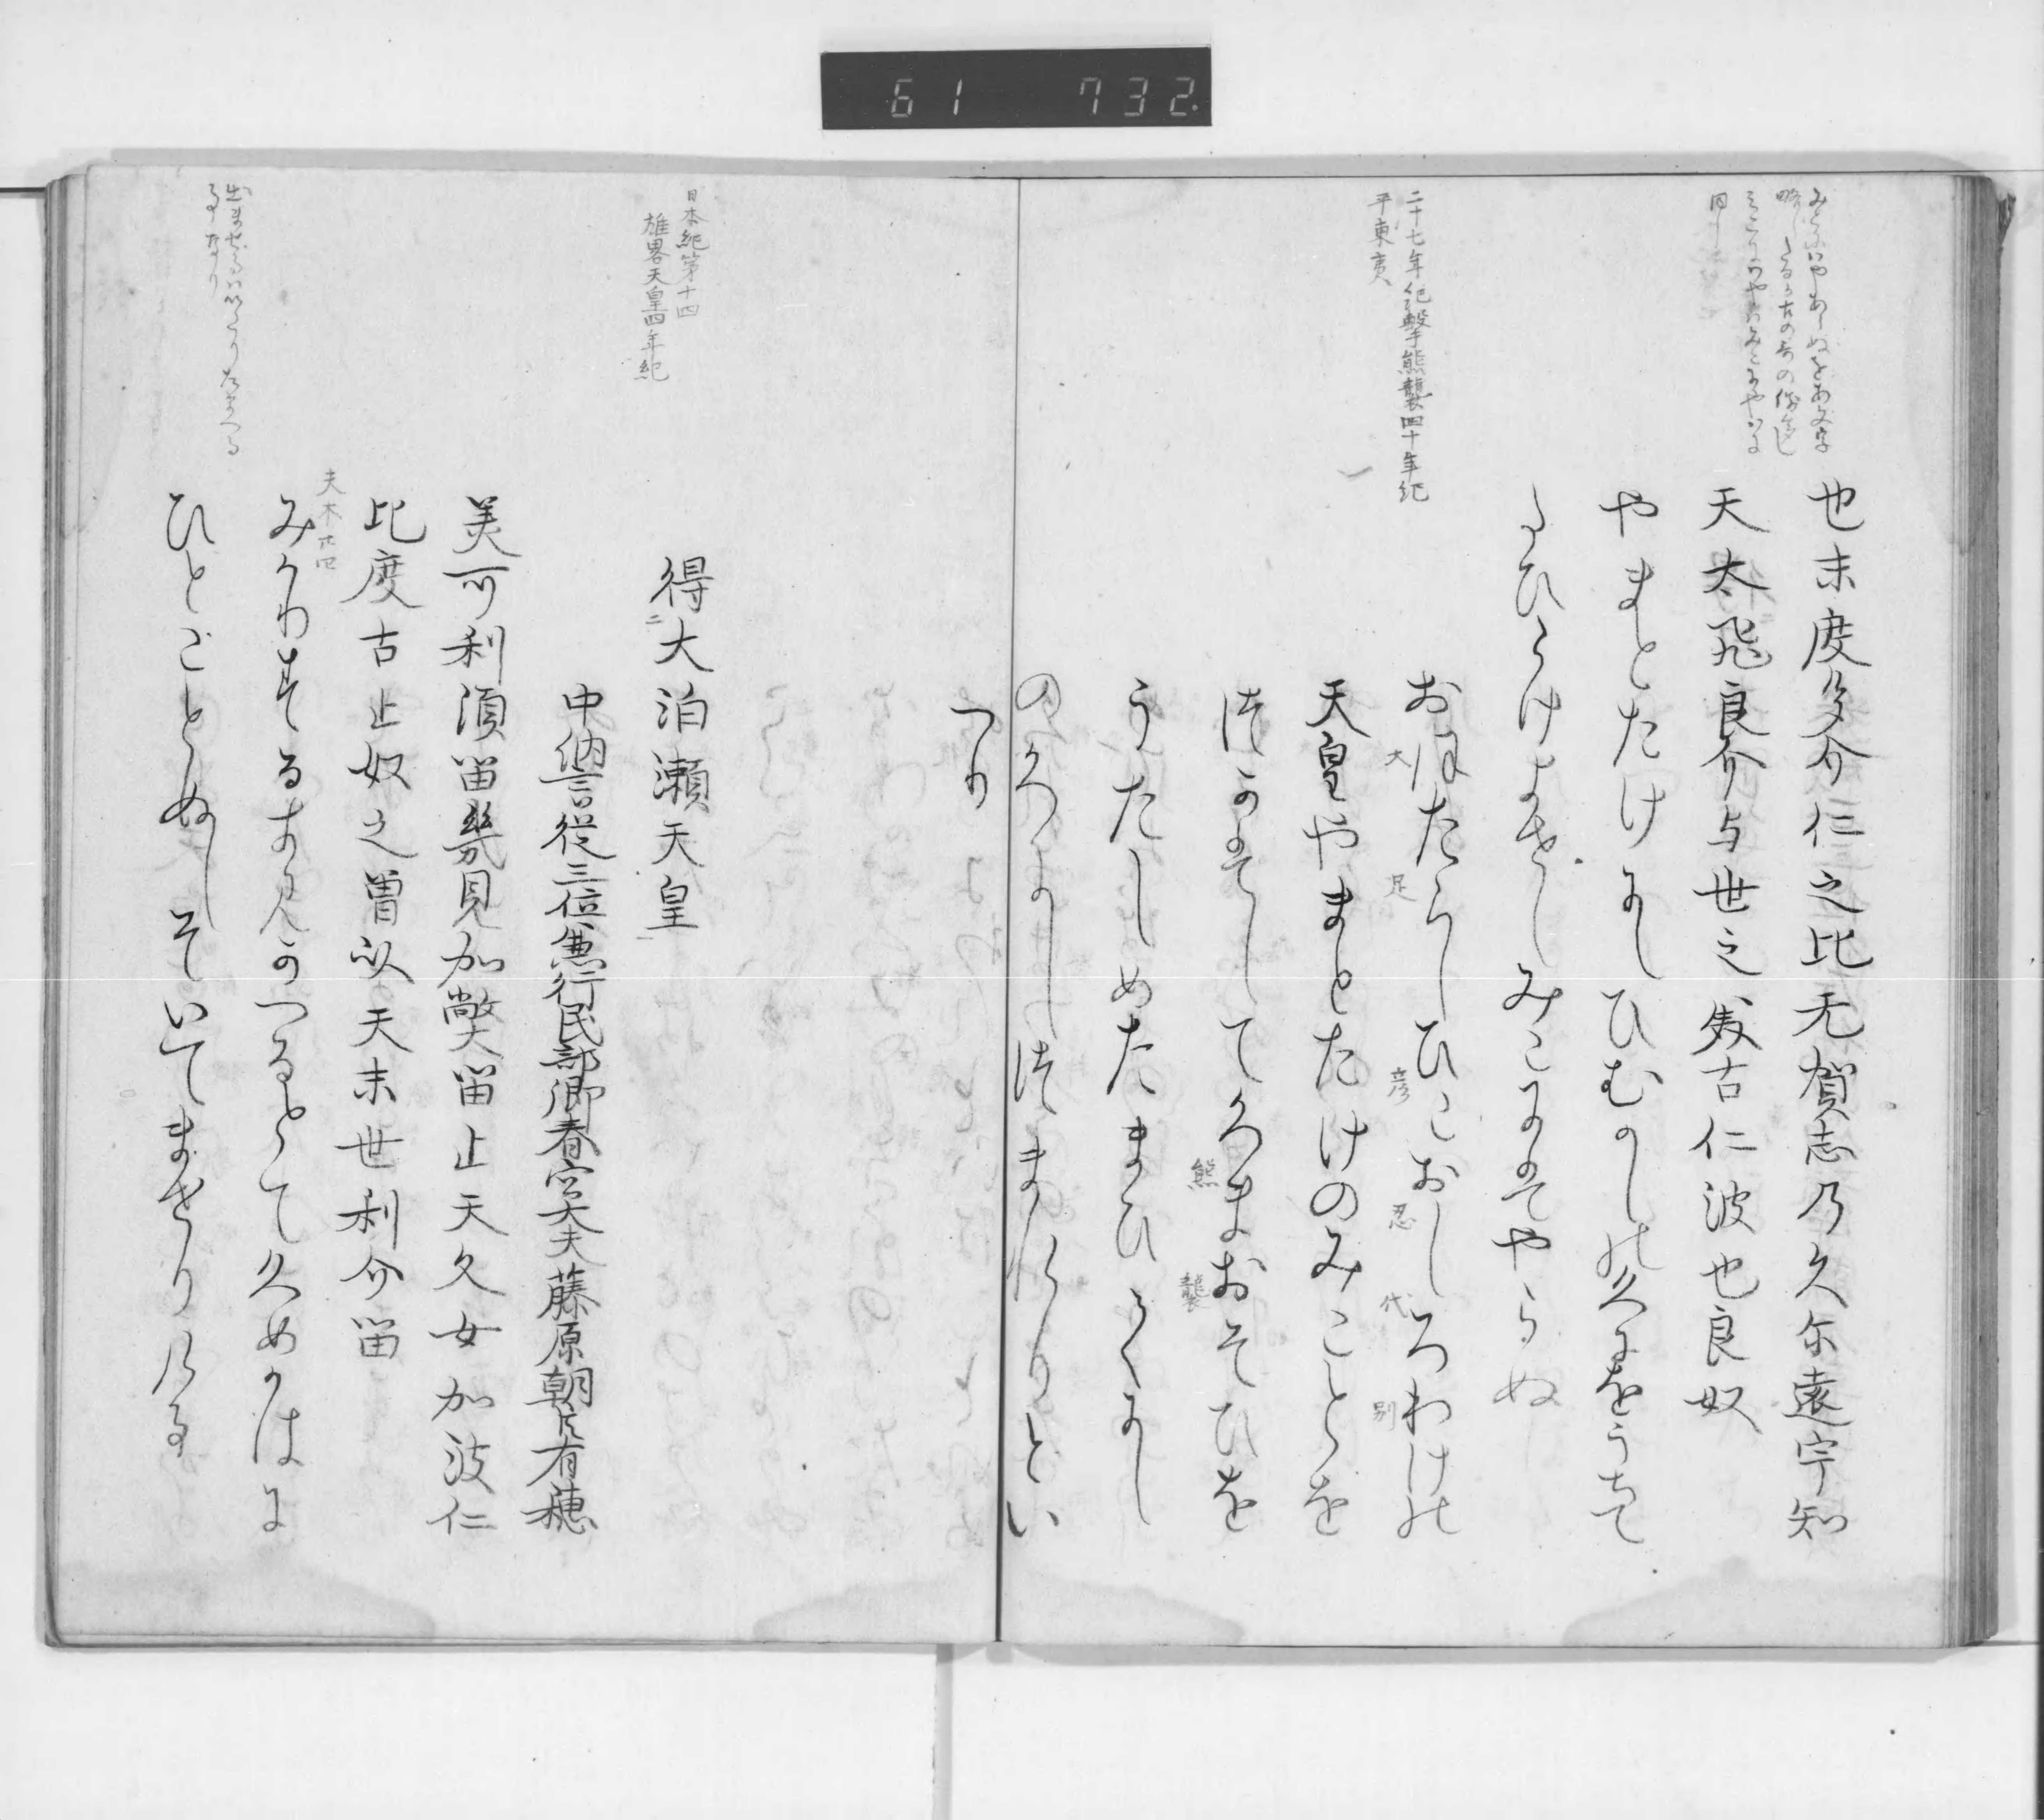 61 732.
二十七年紀撃熊襲四十年紀
平東夷
也末度多介仁之比无賀志乃久尓遠宇知
天太飛良介与世之美古仁波也良奴
やまとたけにしひむかしの久にをうちて
たひらけよせしみこにはやらぬ
おほたらしひこおしろわけの
大 足 彦 忍 代 別
天皇やまとたけのみことを
つかはしてくまおそひを
熊 襲
うたしめたまひかくにし
のくによしつまれりとい
へり
日本紀第十四
雄畧天皇四年紀
得大泊瀬天皇
二
中納言従三位兼行民部卿春宮大夫藤原朝臣有穂
美可利須留幾見加弊留止天久女加波仁
比度古止奴之曽以天末世利介留
夫木廿四
みかりするきみかへるとて久めかはに
ひとことぬしそいてませりける